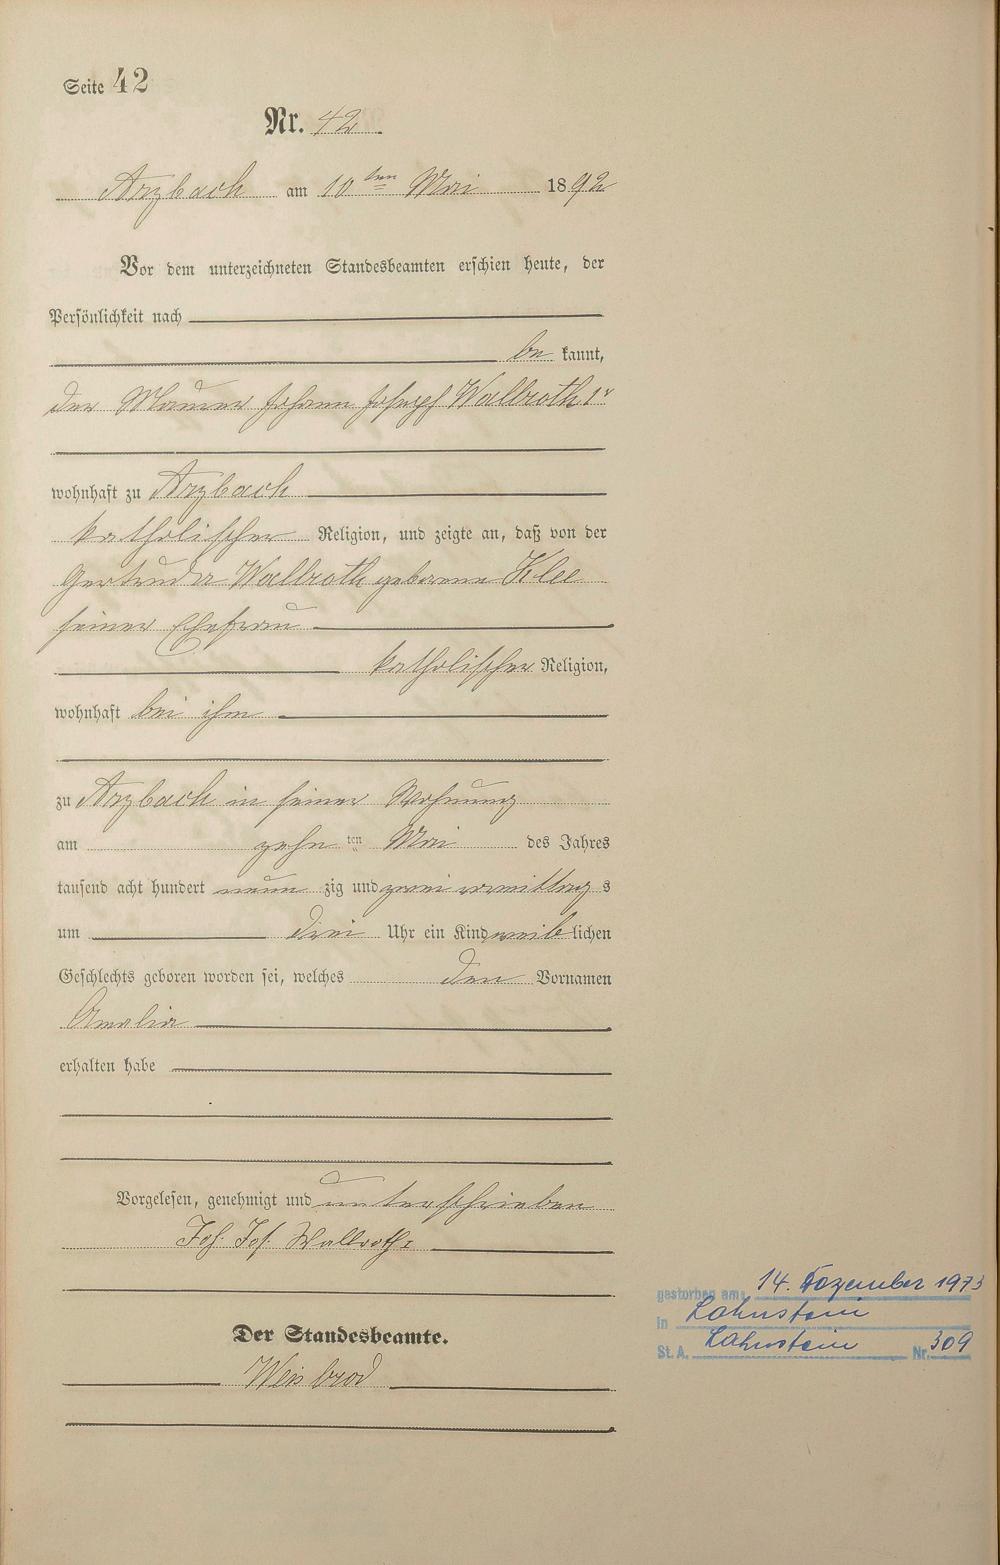 Seite 42
Nr. 42
Arzbach am 10ten Mai 1892
Vor dem unterzeichneten Standesbeamten erschien heute, der
Persönlichkeit nach
be kannt,
der Maurer Johann Joseph Wallroth 1r
wohnhaft zu Arzbach
katholischer Religion, und zeigte an, daß von der
Gertruda Wallroth geborene Klee
seiner Ehefrau
katholischer Religion,
wohnhaft bei ihm
zu Arzbach in seiner Wohnung
am zehn ten Mai des Jahres
tausend acht hundert neun zig und zwei vormittag s
um drei Uhr ein Kind weib lichen
Geschlechts geboren worden sei, welches den Vornamen
Amalia
erhalten habe
Vorgelesen, genehmigt und unterschrieben
Joh. Jos. Wallroth I
Der Standesbeamte.
Weisbrod
gestorben am: 14. Dezember 1973
in Lahnstein
St. A. Lahnstein Nr. 309